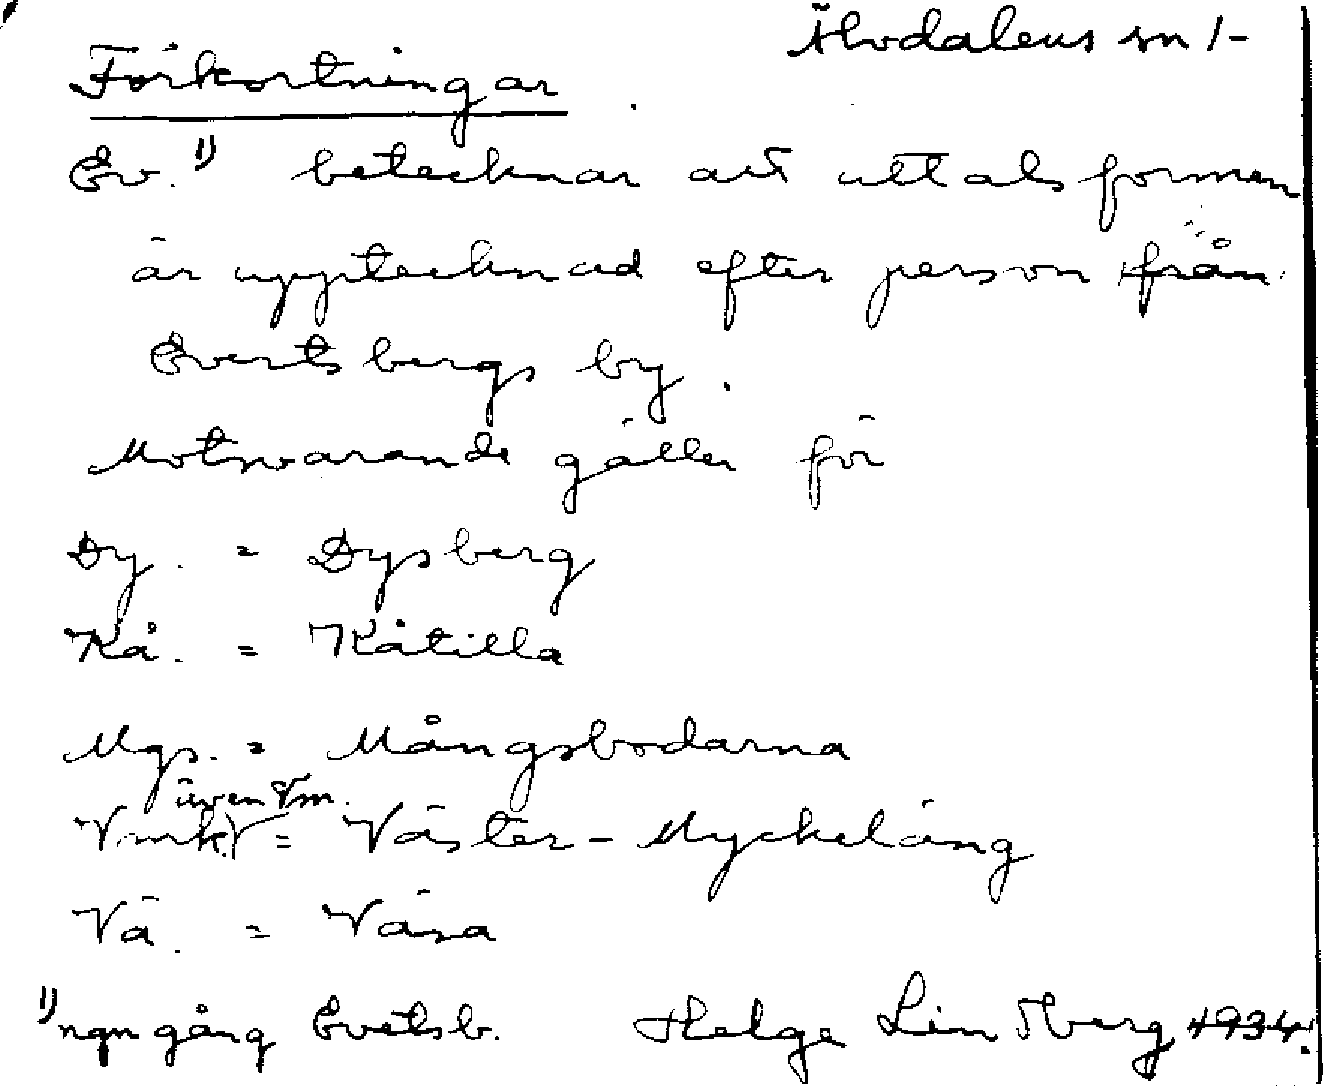 Älvdalens sn 1-
Förkortningar
Ev.¹⁾ betecknar att uttalsformen
är upptecknad efter person från
Evertsbergs by.
Motsvarande gäller för
Dy. = Dysberg
Kå. = Kåtilla
Mgs. = Mångsbodarna
även Vm.
Vmk. = Väster-Myckeläng
Vä. = Väsa
¹⁾ngn gång Evetsb. Helge Lindberg 1934.